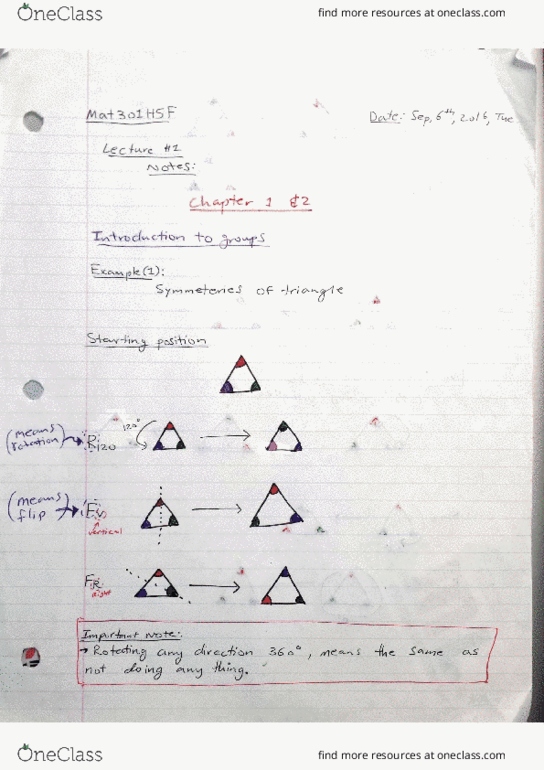 OneClass
find more resources at oneclass.com
Mat301H5F
Date: Sep, 6th, 2016, Tue
Lecture #1
Notes:
Chapter 1 &2
Introduction to groups
Example(1):
Symmeteries of triangle
Starting position
(means rotation) R120 120°
(means flip) Fv
vertical
FR
right
Important Note:
→ Rotating any direction 360°, means the same as
not doing any thing.
OneClass
find more resources at oneclass.com